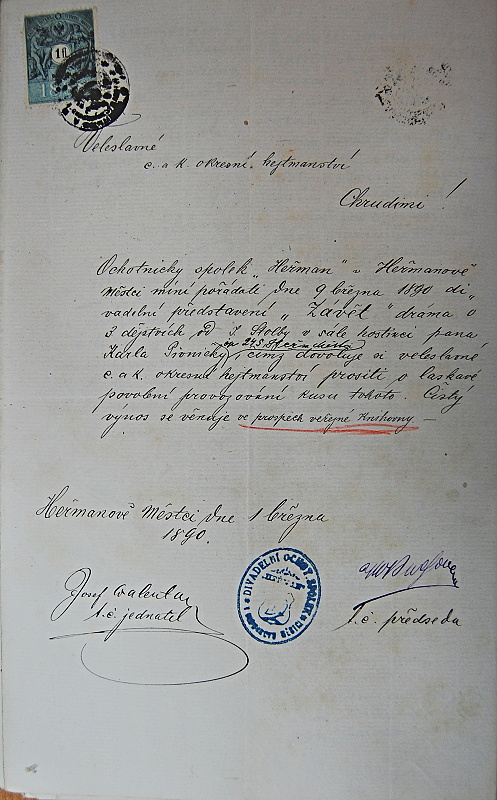 1 fl
Veleslavné
c. a k. okresní hejtmanství
Chrudimi!
Ochotnický spolek „Heřman" v Heřmanově
Městci míní pořádati dne 9 března 1890 di-
vadelní představení „Závěť" drama o
3 dějstvích od J. Štolby v sále hostinci pana
Karla Pivnický, čímž dovoluje si veleslavné
c. a k. okresní hejtmanství prositi o laskavé
povolení provozování kusu tohoto. Čistý
výnos se věnuje ve prospěch veřejné Knihovny.
Heřmanově Městci dne 1 března
1890.
DIVADELNÍ OCHOT. SPOLEK
Josef Valenta
t. č. jednatel
t. č. předseda